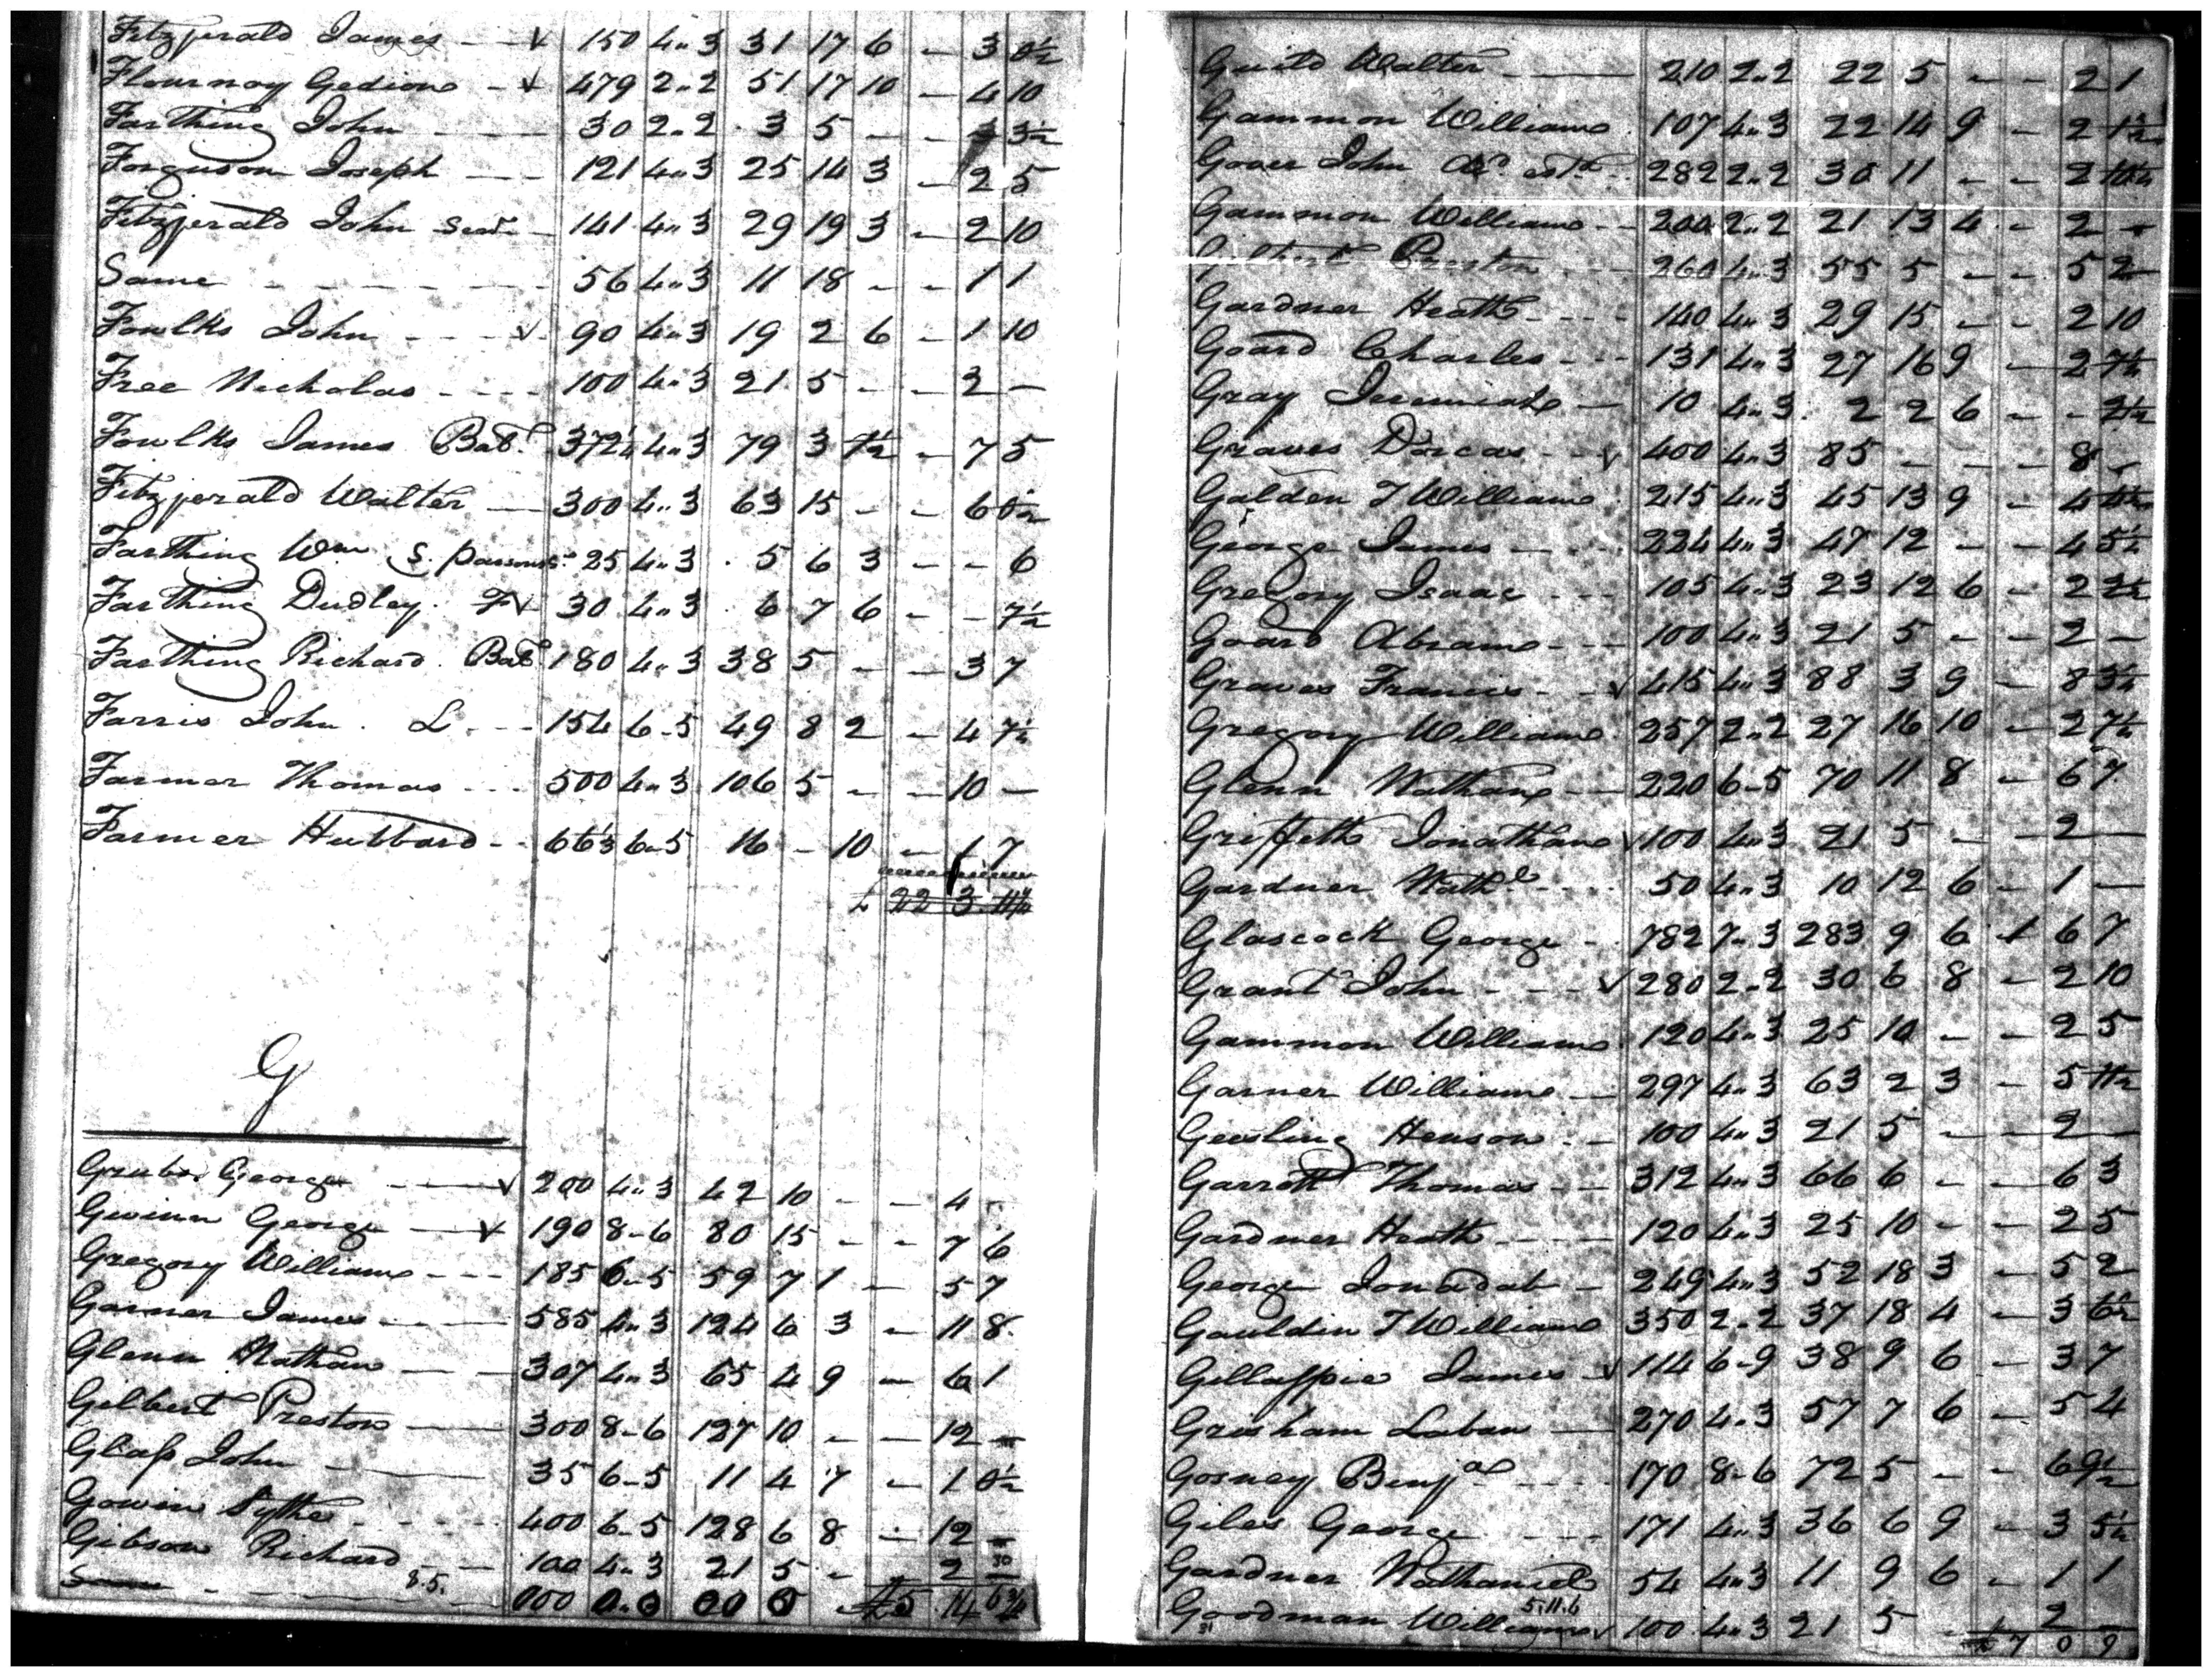 Fitzjerald James — √ 150 4..3 31 17 6 — 3 0½
Flournoy Gedion - √ 479 2..2 51 17 10 — 4 10
Farthing John — 30 2..2 3 5 — — 3½
Forguson Joseph — 121 4..3 25 14 3 — 2 5
Fitzjerald John Senr — 141 4..3 29 19 3 — 2 10
Same — 56 4..3 11 18 — — 1 1
Fowlks John — √ 90 4..3 19 2 6 — 1 10
Free Nicholas — 100 4..3 21 5 — — 2 —
Fowlks James Bat. 372½ 4..3 79 3 1½ — 7 5
Fitzjerald Walter — 300 4..3 63 15 — — 6 0½
Farthing Wm S. 25 4..3 5 6 3 — — 6
Farthing Dudley. F √ 30 4..3 6 7 6 — — 7½
Farthing Richard. Bat 180 4..3 38 5 — — 3 7
Farris John. L. — 154 6-5 49 8 2 — 4 7½
Farmer Thomas — 500 4..3 106 5 — — 10 —
Farmer Hubbard - 66⅓ 6-5 16 — 10 — 1 7
£ 22 3 11¼
G
Grubs George — √ 200 4..3 42 10 — — 4 -
Gwinn George — √ 190 8-6 80 15 — — 7 6
Gregory William — 185 6-5 59 7 1 — 5 7
Garner James — 585 4..3 124 6 3 — 11 8
Glenn Nathan — 307 4..3 65 4 9 — 6 1
Gilbert Preston — 300 8-6 127 10 — — 12 —
Glass John — 35 6-5 11 4 7 — 1 0½
Gowin — 400 6-5 128 6 8 — 12 —
Gibson Richard — 100 4..3 21 5 — 2 —
8.5. 000 0..0 00 0 £5 14 6¾
Guild Walter — 210 2..2 22 5 — — 2 1
Gammon William 107 4..3 22 14 9 — 2 1½
Gover John 282 2..2 30 11 — — 2 10½
Gammon William — 200 2..2 21 13 4 — 2 —
Gilbert Preston — 260 4..3 55 5 — — 5 2
Gardner Heath — 140 4..3 29 15 — — 2 10
Goard Charles — 131 4..3 27 16 9 — 2 7½
Gray Jeremiah — 10 4..3 2 2 6 — — 2½
Graves Dorcas — √ 400 4..3 85 — — — 8 —
Galden T William 215 4..3 45 13 9 — 4
George James — 224 4..3 47 12 — — 4 5½
Gregory Isaac — 105 4..3 23 12 6 — 2 2½
Goard Abram — 100 4..3 21 5 — — 2 —
Graves Francis — √ 415 4..3 88 3 9 — 8 3½
Gregory William 257 2..2 27 16 10 — 2 7½
Glenn Nathan — 220 6-5 70 11 8 — 6 7
Griffeth Jonathan √ 100 4..3 21 5 — — 2 —
Gardner Nathl — 50 4..3 10 12 6 — 1 —
Glascock George - 782 7-3 283 9 6 1 6 7
Grant John — √ 280 2..2 30 6 8 — 2 10
Gammon William 120 4..3 25 10 — — 2 5
Garner William — 297 4..3 63 2 3 — 5 11½
Geesling Henson — 100 4..3 21 5 — — 2 —
Garrott Thomas — 312 4..3 66 6 — — 6 3
Gardner Heath — 120 4..3 25 10 — — 2 5
George Jonadab — 249 4..3 52 18 3 — 5 2
Gauldin T William 350 2..2 37 18 4 — 3 6½
Gillaspie James √ 114 6-9 38 9 6 — 3 7
Grisham Laban — 270 4..3 57 7 6 — 5 4
Gosney Benja — 170 8-6 72 5 — — 6 9½
Giles George — 171 4..3 36 6 9 — 3 5½
Gardner Nathaniel 54 4..3 11 9 6 — 1 1
Goodman William √ 100 4..3 21 5 — 2 —
31 5.11.6 £ 7 0 9